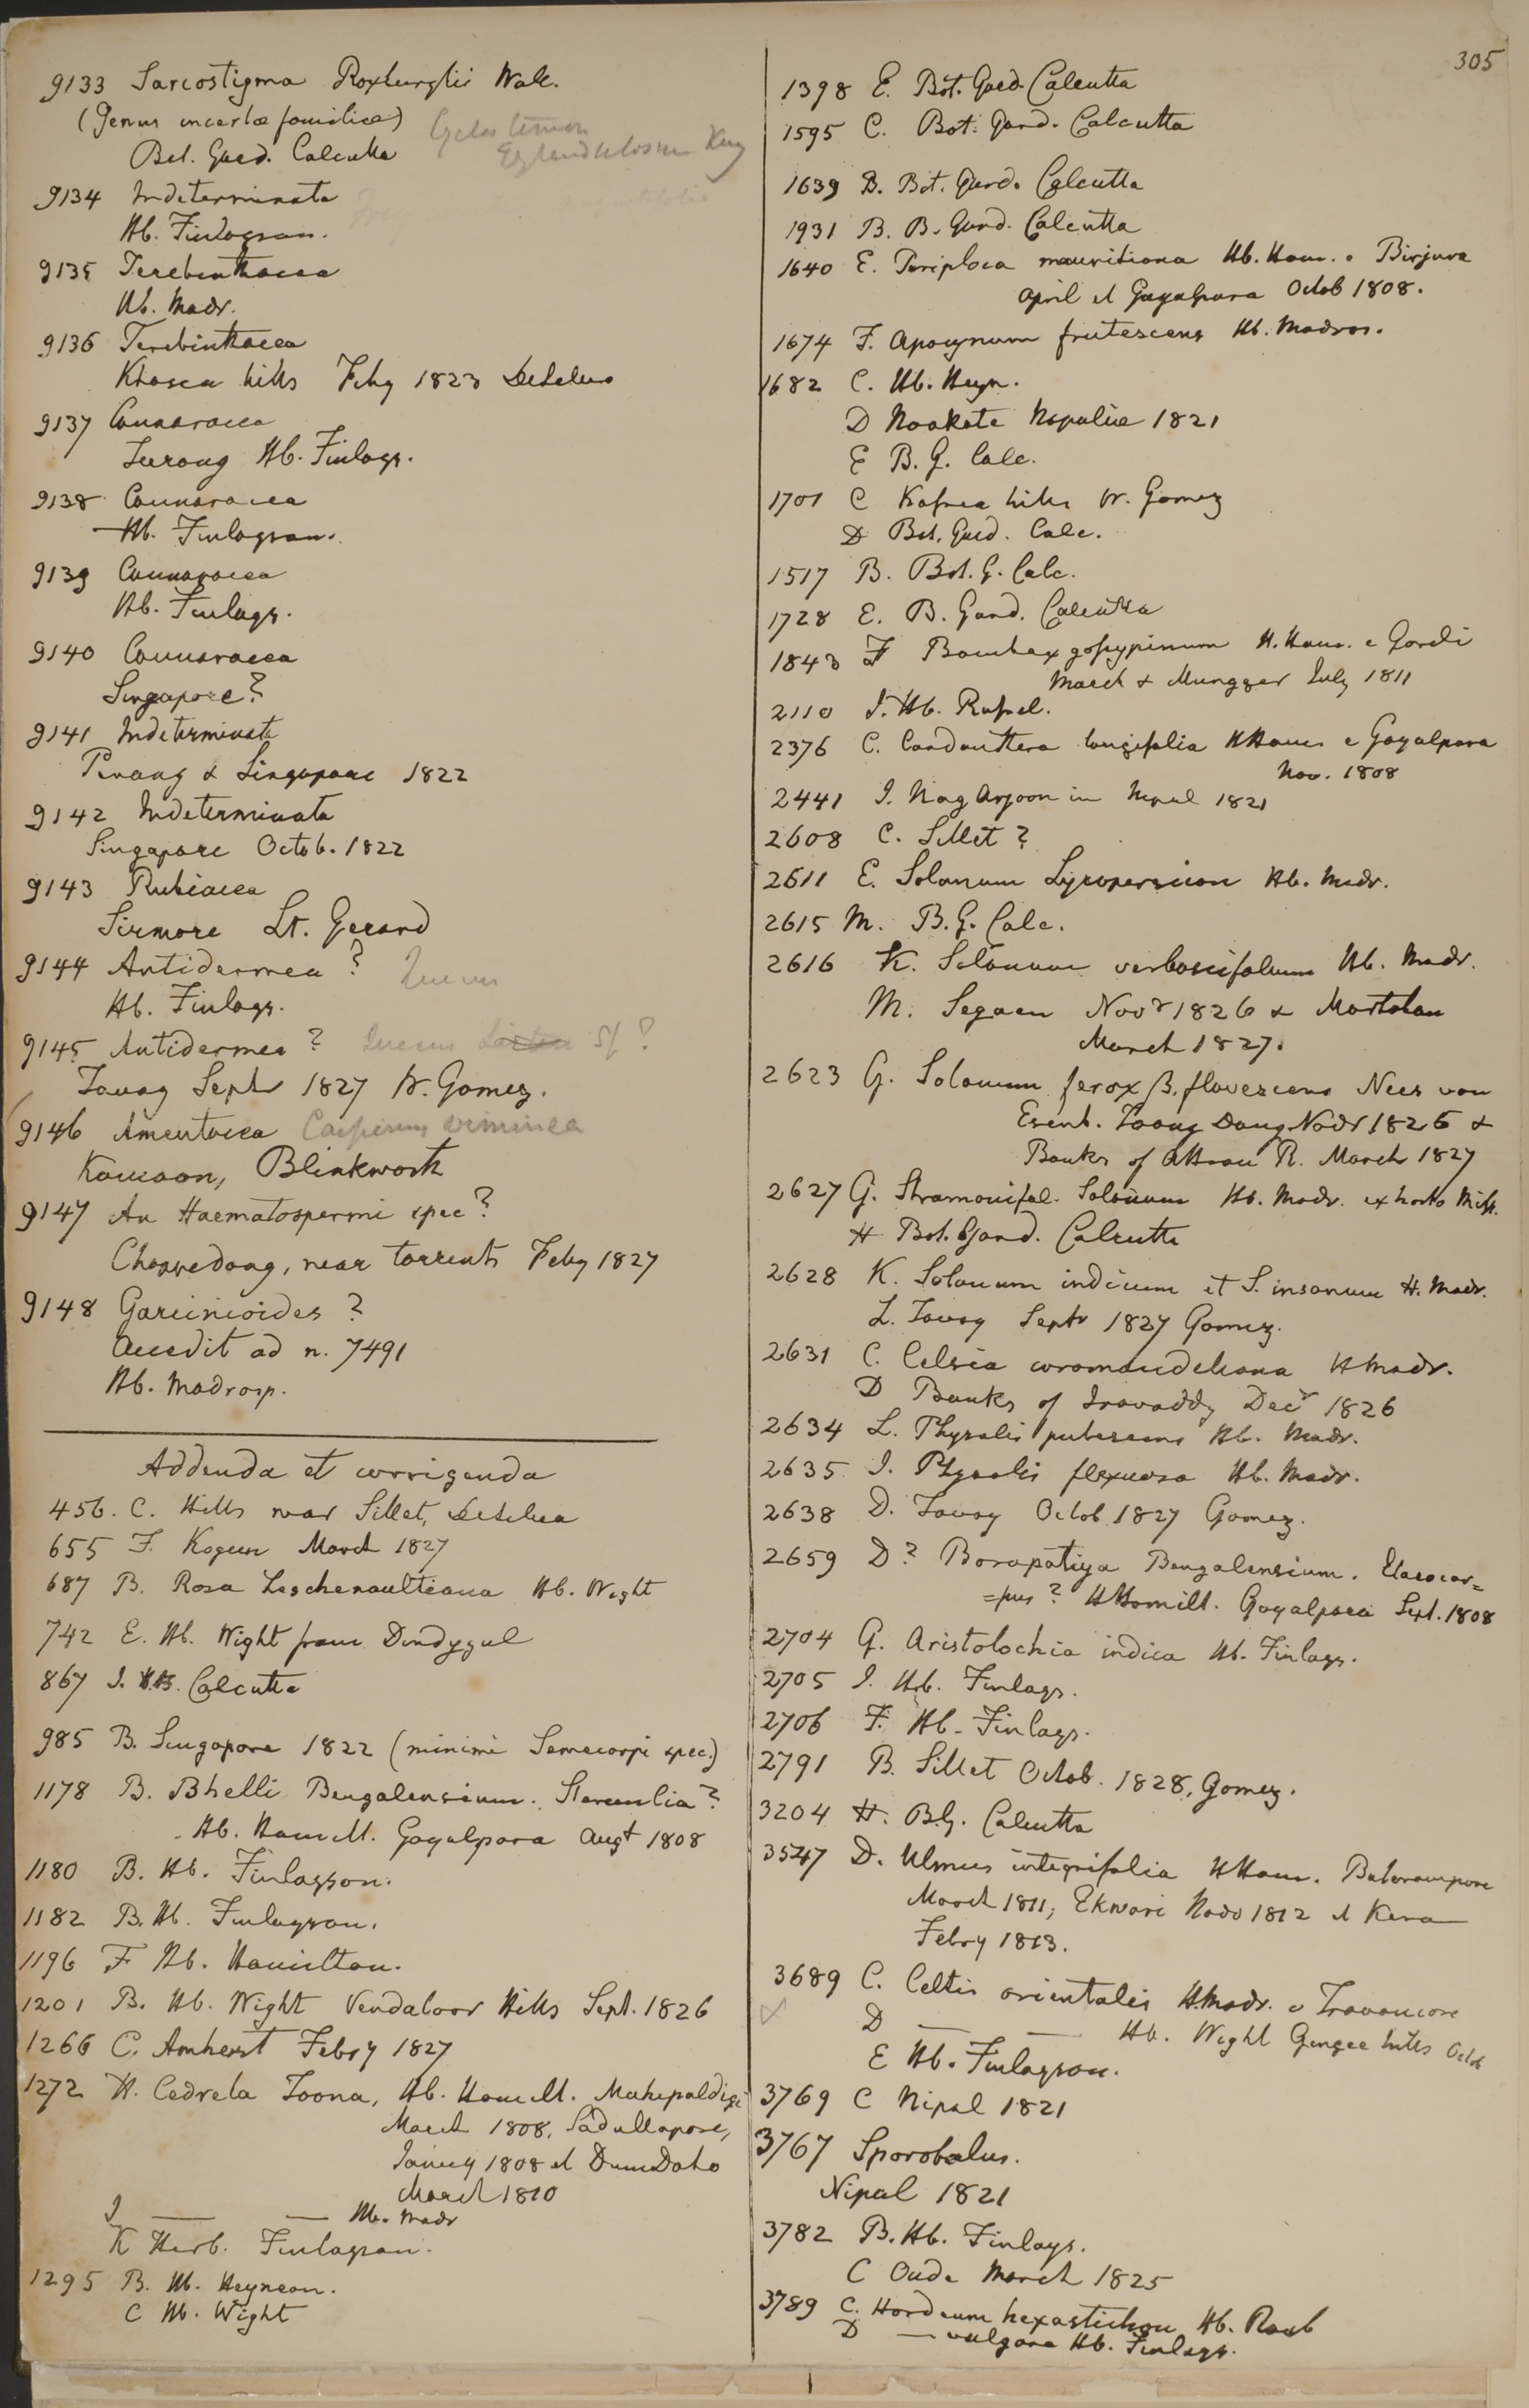 305
9133 Sarcostigma Roxburghii Wall.
(Genus incertæ familiæ)
Bot. Gard. Calcutta
9134 Indeterminata
Hb. Finlayson.
9135 Terebinthacea
Hb. Madr.
9136 Terebinthacea
Khasea hills Feby 1823 DeSilva
9137 Connaracea
Hb. Finlays.
9138 Connaracea
Hb. Finlayson.
9139 Connaracea
Hb. Finlays.
9140 Connaracea
Singapore?
9141 Indeterminata
Penang & Singapore 1822
9142 Indeterminata
Singapore Octob. 1822
9143 Rubiacea
Sirmore Lt. Gerard
9144 Antidesmea ?
Hb. Finlays.
9145 Antidesmea ? Quercus
Tavoy Septr 1827 W. Gomez.
9146 Amentacea Carpinus viminea
Kamaon, Blinkworth
9147 An Haematospermi spec?
near torrents Feby 1827
9148 Garcinioides ?
Accedit ad n. 7491
Hb. Madrasp.
Addenda et corrigenda
456. C. Hills near Sillet, DeSilva
655 F. Kogeen March 1827
687 B. Rosa Leschenaultiana Hb. Wight
742 E. Hb. Wight from Dindygul
867 I. Calcutta
985 B. Singapore 1822 (minimè Semecarpi spec.)
1178 B. Bhelli Bengalensium. Sterculia?
Hb. Hamilt. Goyalpara Augt 1808
1180 B. Hb. Finlayson.
1182 B. Hb. Finlayson.
1196 F Hb. Hamilton.
1201 B. Hb. Wight Vendaloor Hills Sept. 1826
1266 C. Amherst Febry 1827
1272 H. Cedrela Toona, Hb. Hamilt. Mahepaldigi
March 1808, Sadullapore,
Janury 1808 et
March 1810
I — — Hb. Madr
K Herb. Finlayson.
1295 B. Hb. Heynean.
C Hb. Wight
1398 E. Bot. Gard. Calcutta
1595 C. Bot. Gard. Calcutta
1639 B. Bot. Gard. Calcutta
1931 B. B. Gard. Calcutta
1640 E. Periploca mauritiana Hb. Ham. e Birjura
April et Goyalpara Octob 1808.
1674 F. Apocynum frutescens Hb. Madras.
1682 C. Hb. Heyn.
D Noakote Nepaliæ 1821
E B. G. Calc.
1701 C hills W. Gomez
D Bot. Gard. Calc.
1517 B. Bot. G. Calc.
1728 E. B. Gard. Calcutta
1843 F Bombax gossypinum H. Ham. e
March & Mungger July 1811
2110 I. Hb. Russel.
2376 C. longifolia HHam e Goyalpara
Nov. 1808
2441 I. Nag Arjoon in Nepal 1821
2608 C. Sillet ?
2611 E. Solanum Lycopersicon Hb. Madr.
2615 M. B. G. Calc.
2616 K. Solanum verbascifolium Hb. Madr.
M. Segaen Novr 1826 & Martaban
March 1827.
2623 G. Solanum ferox β. flavescens Nees von
Esenb. Taong Dong Novr 1826 &
Banks of Attran R. March 1827
2627 G. Stramonifol. Solanum Hb. Madr. ex horto Miss.
H Bot. Gard. Calcutta
2628 K. Solanum indicum et S. insanum H. Madr.
L. Tavoy Septr 1827 Gomez.
2631 C. Celsia coromandeliana H Madr.
D Banks of Irawaddy Decr 1826
2634 L. Physalis pubescens Hb. Madr.
2635 I. Physalis flexuosa Hb. Madr.
2638 D. Tavoy Octob 1827 Gomez.
2659 D? Borapatiya Bengalensium. Elaeocar=
=pus ? HHamilt. Goyalpara Sept. 1808
2704 G. Aristolochia indica Hb. Finlays.
2705 I. Hb. Finlays.
2706 F. Hb. Finlays.
2791 B. Sillet Octob. 1828, Gomez.
3204 H. B.G. Calcutta
3547 D. Ulmus integrifolia HHam.
March 1811; Ekwari Novr 1812 et Kera
Febry 1813.
3689 C. Celtis orientalis HMadr. e Travancore
D — — Hb. Wight Gingee hills Octob
E Hb. Finlayson.
3769 C Nipal 1821
3767 Sporobolus.
Nipal 1821
3782 B. Hb. Finlays.
C Oude March 1825
3789 C. Hordeum hexastichon Hb. Roxb
D — vulgare Hb. Finlays.